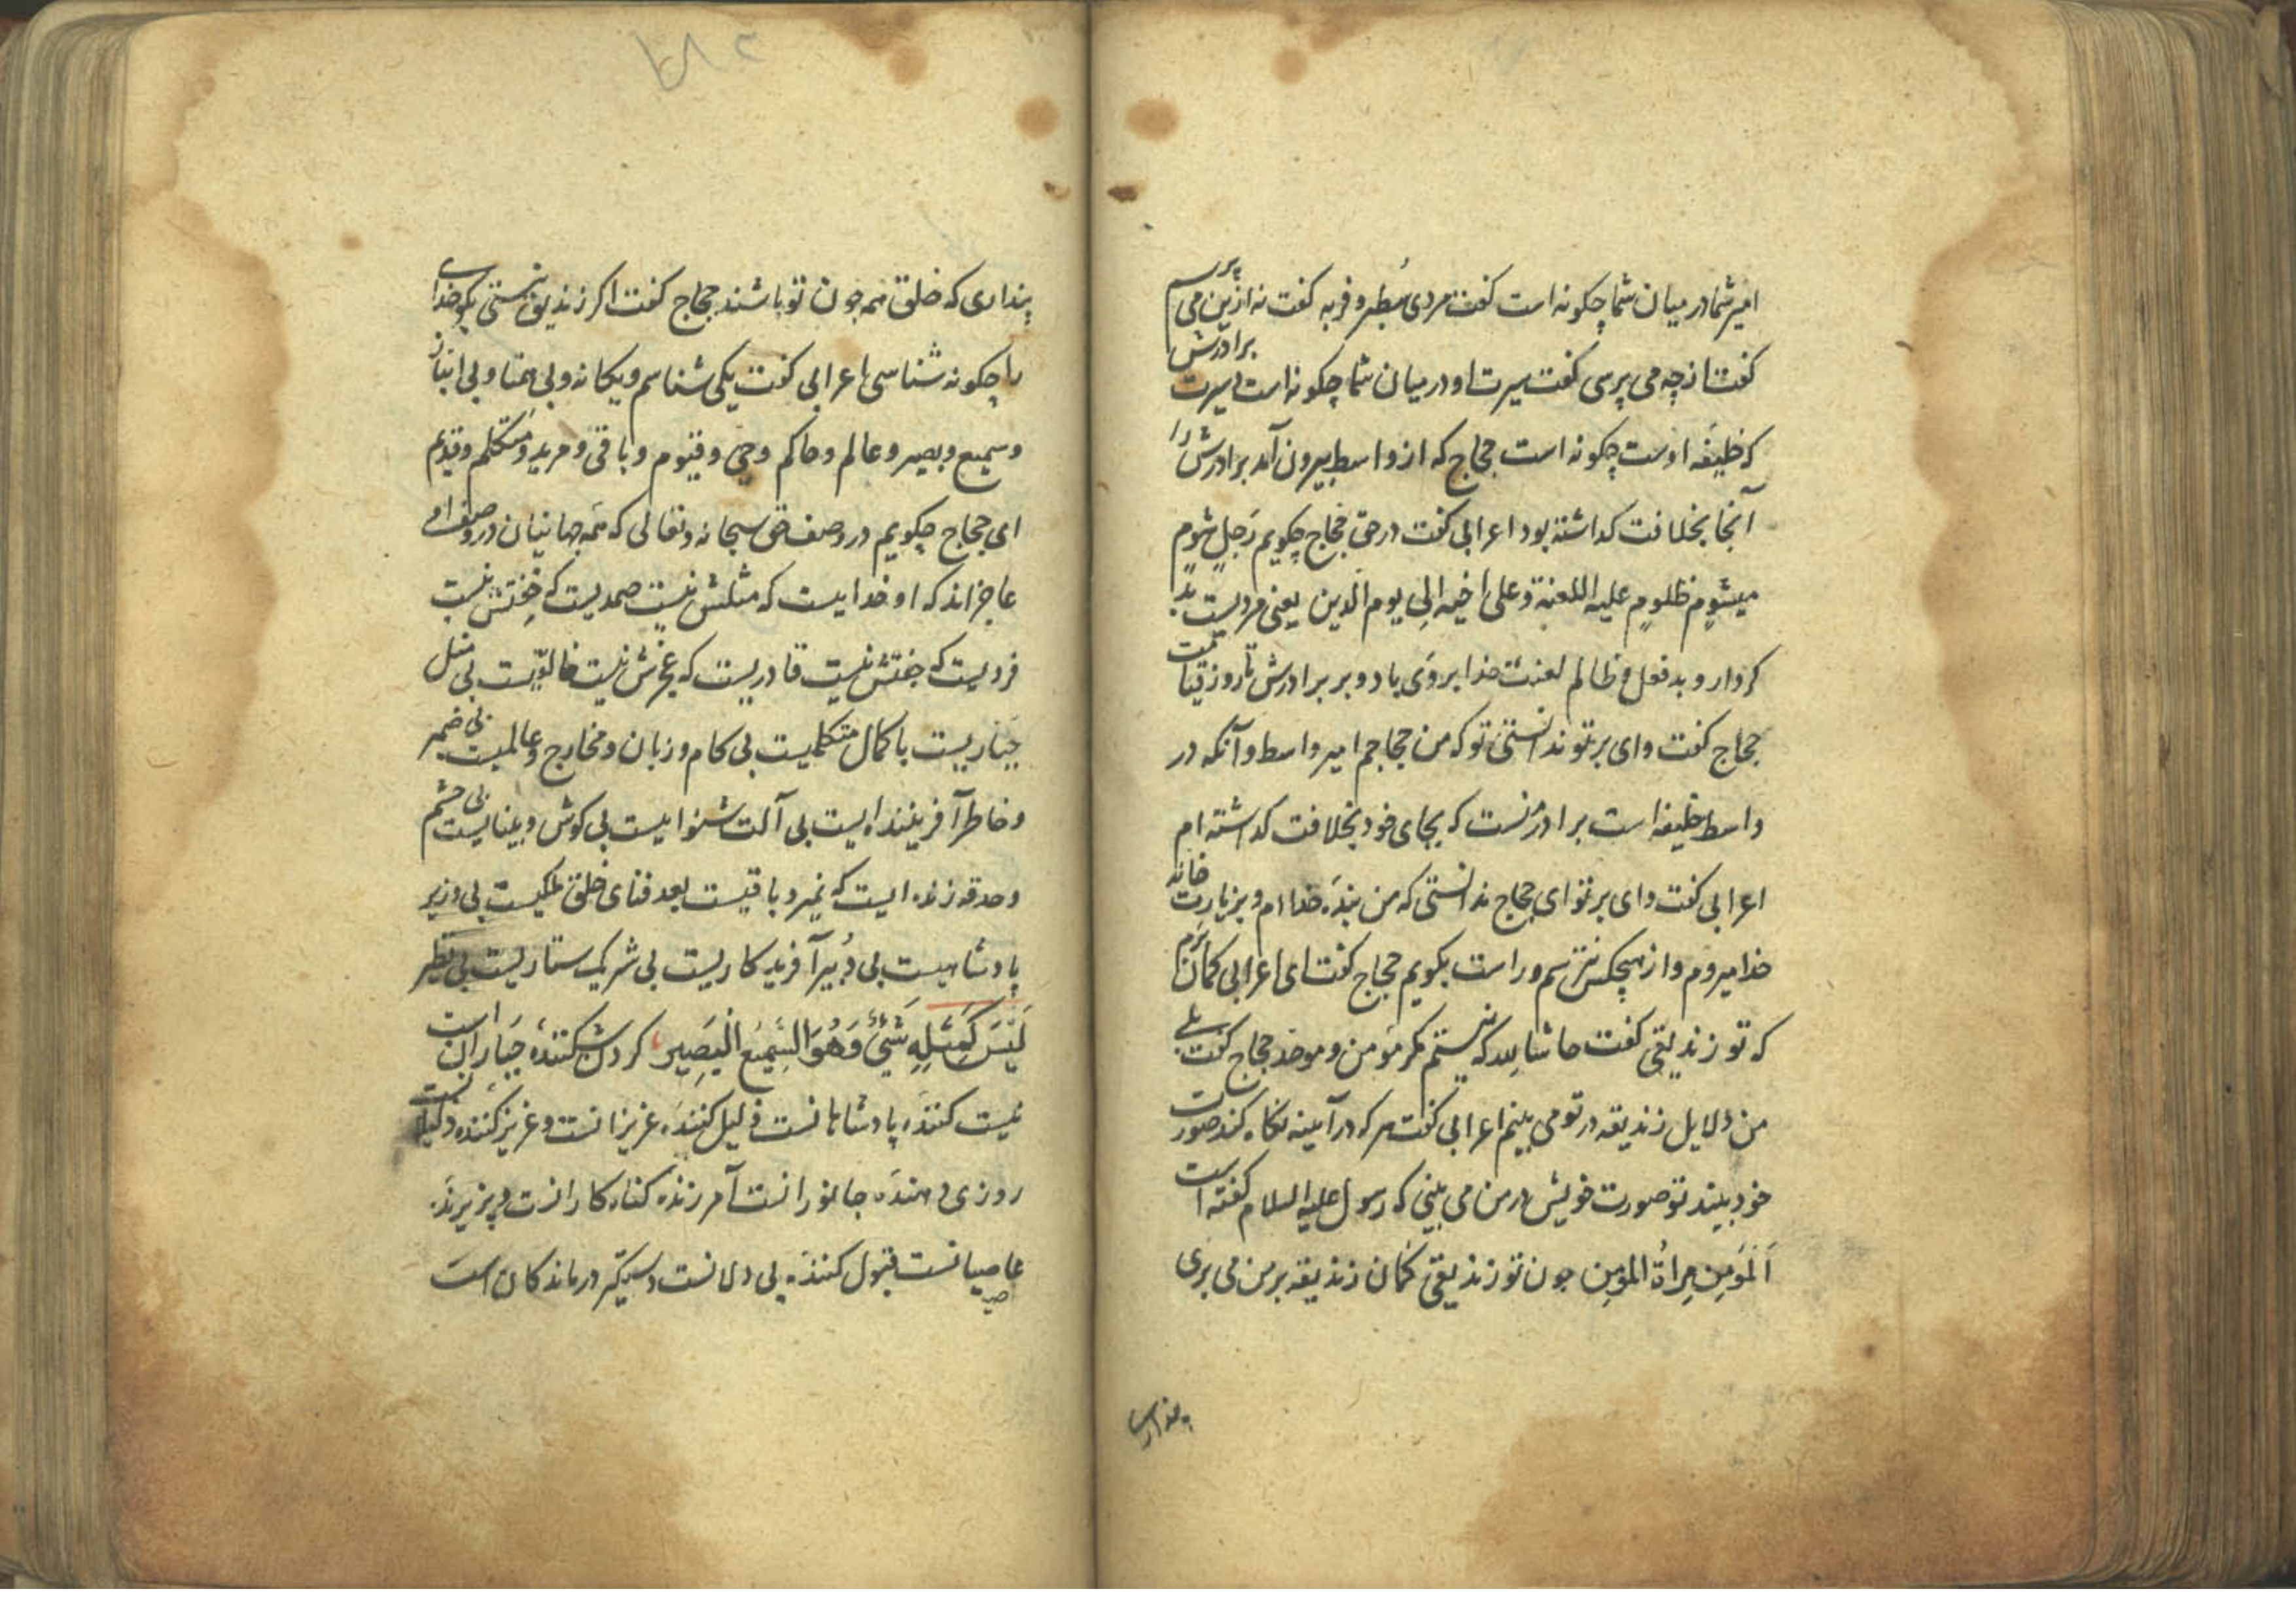 امیر شما در میان شما چکونه است کفت مردی مُبطر و فربه کفت نه ازین می پرسم
کفت از چه می پرسی کفت سیرت او در میان شما چکونه است سیرت برادرش
که خلیفه اوست چکونه است حجاج که از واسط بیرون آمد برادرش را
آنجا بخلافت کداشته بود اعرابی کفت در حق حجاج چکویم رَجلٍ شومٍ
میشومٍ ظلومٍ علیه اللعنة وعلی اخیه الی یوم الدین یعنی مردیست بد
کردار و بد فعل و ظالم لعنت خدا بر وی باد و بر برادرش تا روز قیامت
حجاج کفت وای بر تو ندانستی تو که من حجاجم امیر واسط و آنکه در
واسط خلیفه است برادر منست که بجای خود بخلافت کداشته ام
اعرابی کفت وای بر تو ای حجاج ندانستی که من بنده خداام و بزیارت خانه
خدا میروم و از هیچکس نترسم و راست بکویم حجاج کفت ای اعرابی کمان برم
که تو زندیقی کفت حاشا لله که نیستم مکر مؤمن و موحد حجاج کفت بلی
من دلایل زندیقه در تو می بینم اعرابی کفت هر که در آیینه نکاه کند صورت
خود بیند تو صورت خویش در من می بینی که رسول علیه السلام کفته است
اَلمؤمِن مِراةُ المؤمِن جون تو زندیقی کمان زندیقه بر من می بری
پنداری
۲۸۲
پنداری که خلق همه جون تو باشند حجاج کفت اکر زندیق نیستی بکو خدای
را چکونه شناسی اعرابی کفت یکی شناسم و یکانه و بی همتا و بی انباز
و سمیع و بصیر و عالم و حاکم و حی و قیوم و باقی و مرید و متکلم و قدیم
ای حجاج چکویم در وصف حق سبحانه و تعالی که همه جهانیان در وصف او
عاجزاند که او خداییست که مثلش نیست صمدیست که جنتش نیست
فردیست که جفتش نیست قادریست که عجزش نیست خالقیست بی مثل
جباریست با کمال متکلمیست بی کام و زبان و مخارج و عالمیست بی ضمیر
و خاطر آفریننده ایست بی آلت شنواییست بی کوش و بیناییست بی چشم
و حدقه زنده ایست که نمیرد باقیست بعد فنای خلق ملکیست بی وزیر
پادشاهیست بی دبیر آفریدکاریست بی شریک ستاریست بی نظیر
لَیْسَ کَمِثْلِهِ شَیْئٌ وَهُوَ السَّمِیعُ الْبَصِیر کردن شکننده جباران است
نیست کننده پادشاهانست ذلیل کننده عزیزانست و عزیز کننده ذلیلانست
روزی دهنده جانورانست آمرزنده کناه کارانست و پزیرنده
عاصیانست قبول کننده بی دلانست دستکیر درماندکان است
صیا